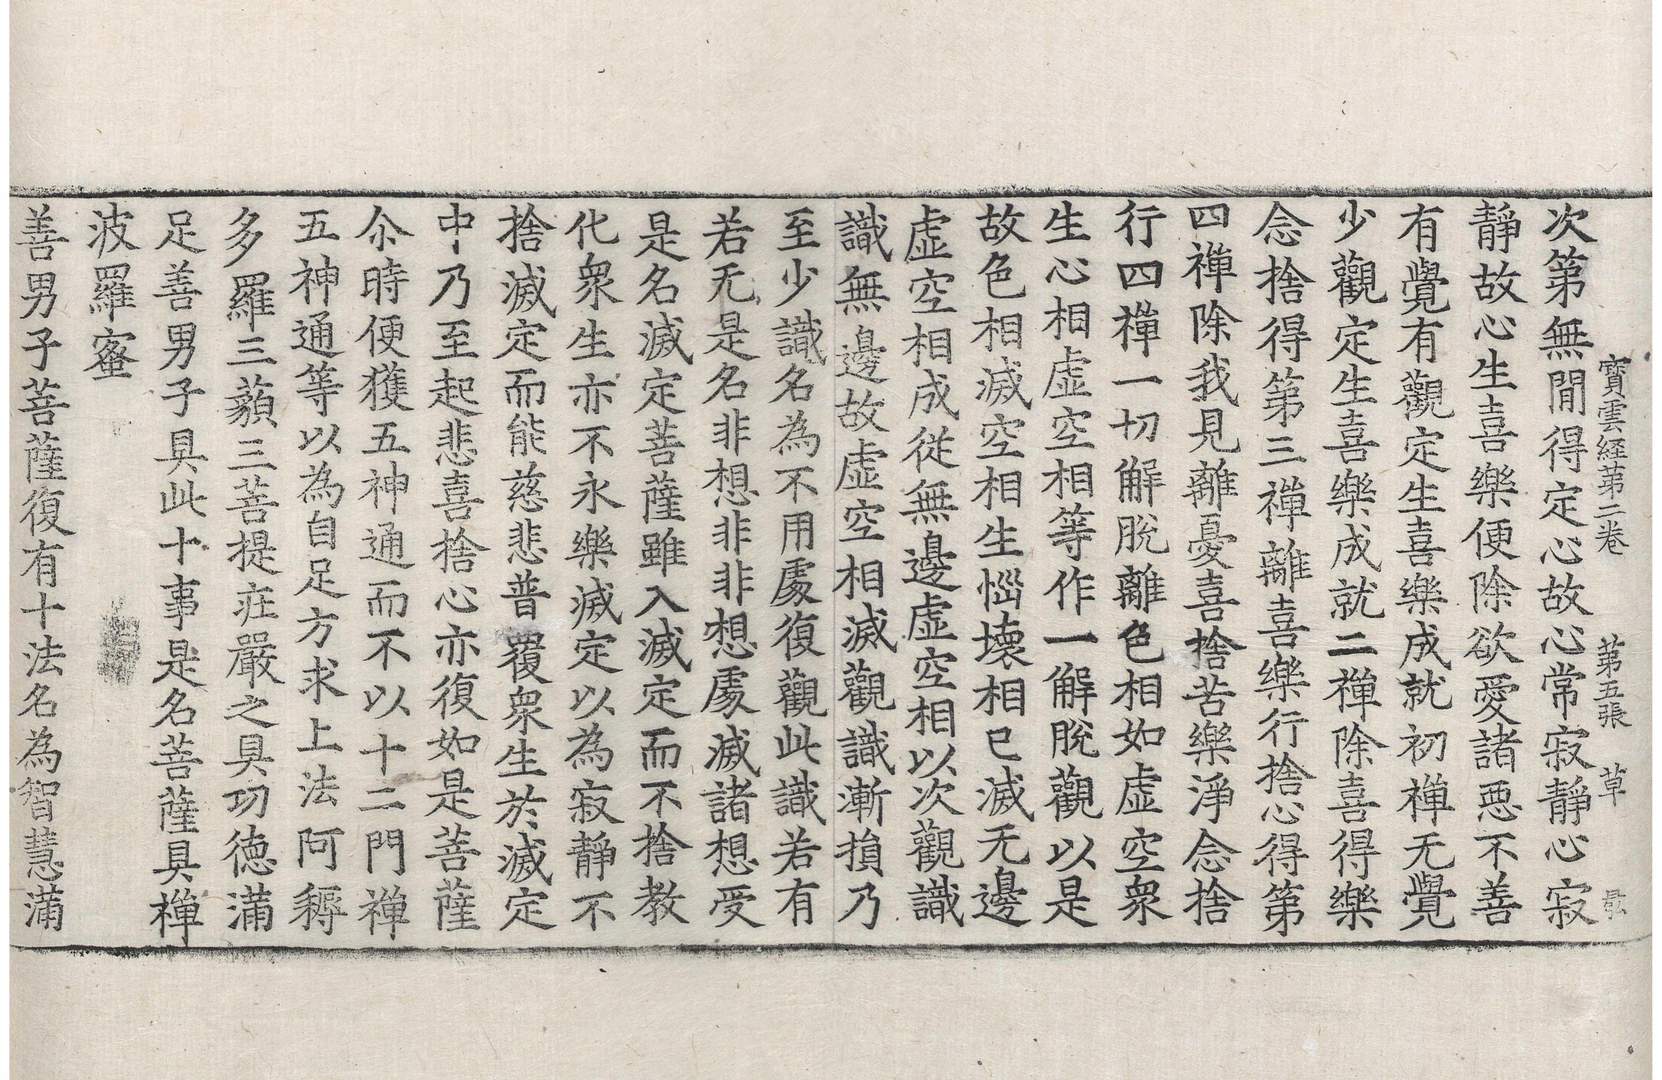 寶雲経苐二卷　苐五張　草
次第無間得定心故心常寂靜心寂
靜故心生喜樂便除欲愛諸惡不善
有覺有觀定生喜樂成就初禪无覺
少觀定生喜樂成就二禪除喜得樂
念捨得第三禪離喜樂行捨心得第
四禪除我見離憂喜捨苦樂淨念捨
行四禪一切解脫離色相如虛空衆
生心相虛空相等作一解脫觀以是
故色相滅空相生惱壞相已滅无邊
虛空相成從無邊虛空相以次觀識
識無邊故虛空相滅觀識漸損乃
至少識名為不用處復觀此識若有
若无是名非想非非想處滅諸想受
是名滅定菩薩雖入滅定而不捨教
化衆生亦不永樂滅定以為寂靜不
捨滅定而能慈悲普覆衆生於滅定
中乃至起悲喜捨心亦復如是菩薩
尒時便獲五神通而不以十二門禪
五神通等以為自足方求上法阿耨
多羅三藐三菩提莊嚴之具功德滿
足善男子具此十事是名菩薩具禪
波羅蜜
善男子菩薩復有十法名為智慧滿